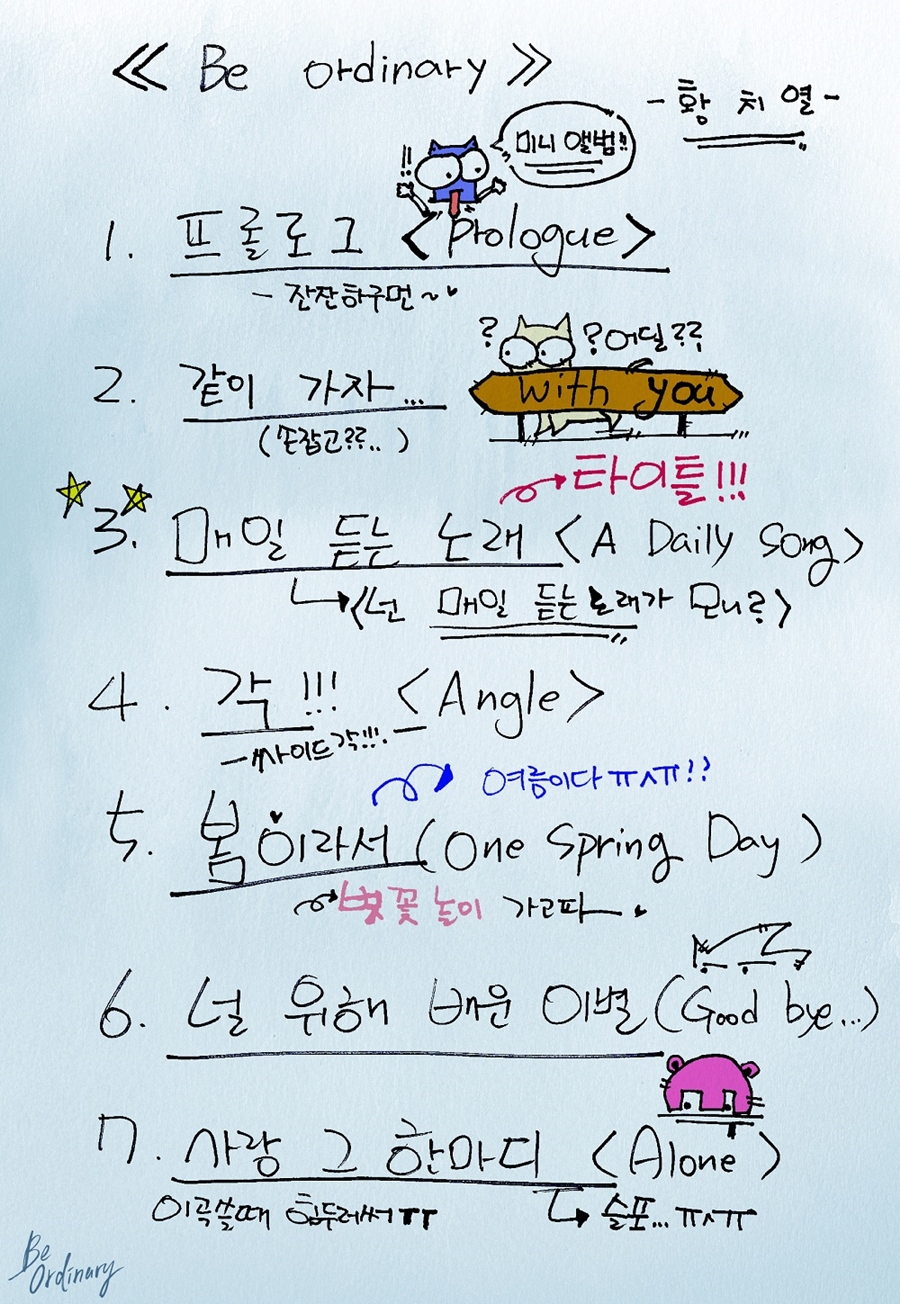 ≪ Be ordinary ≫
- 황 치 열 -
!!
미니 앨범!!
1. 프롤로그 <Prologue>
- 잔잔하구먼~♥
2. 같이 가자...
? ? 어딜??
with you
(손잡고??..)
→ 타이틀!!!
3. 매일 듣는 노래 <A Daily Song>
<넌 매일 듣는 노래가 모니?>
4. 각!!! <Angle>
- 싸이드각!!!. -
여름이다 ㅠㅅㅠ!?
5. 봄이라서 (One Spring Day)
벚꽃놀이 가고파~♥
6. 널 위해 배운 이별 (Good bye...)
7. 사랑 그 한마디 <Alone>
이곡쓸때 힘두러써ㅠㅠ
슬포... ㅠㅅㅠ
Be Ordinary